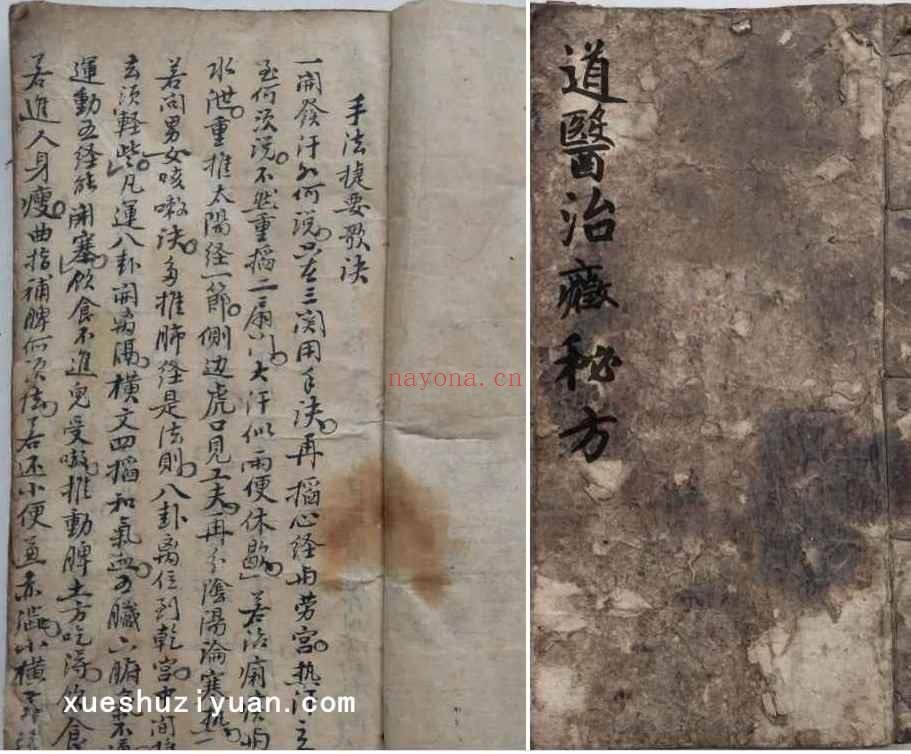 手法捷要歌诀
一開發汗如何說只在三関用手诀再掐心经与劳宫热汗立
至何须说不然重掐二扇门大汗似雨便休歇若治痢疾与
水泄重推太陽经一節側边虎口見工夫再分陰陽論寒热
若问男女咳嗽诀多推肺经是法則八卦离位到乾宫中间
去须軽些凡運八卦開胸膈橫文四掐和氣血五臟六腑氣不
運動五经能開塞飲食不進兒受嗽推動脾土方吃得飲食
若進人身瘦曲指補脾何须法若还小便兼赤澁小橫
道醫治癥秘方
nayona.cn
xueshuziyuan.com